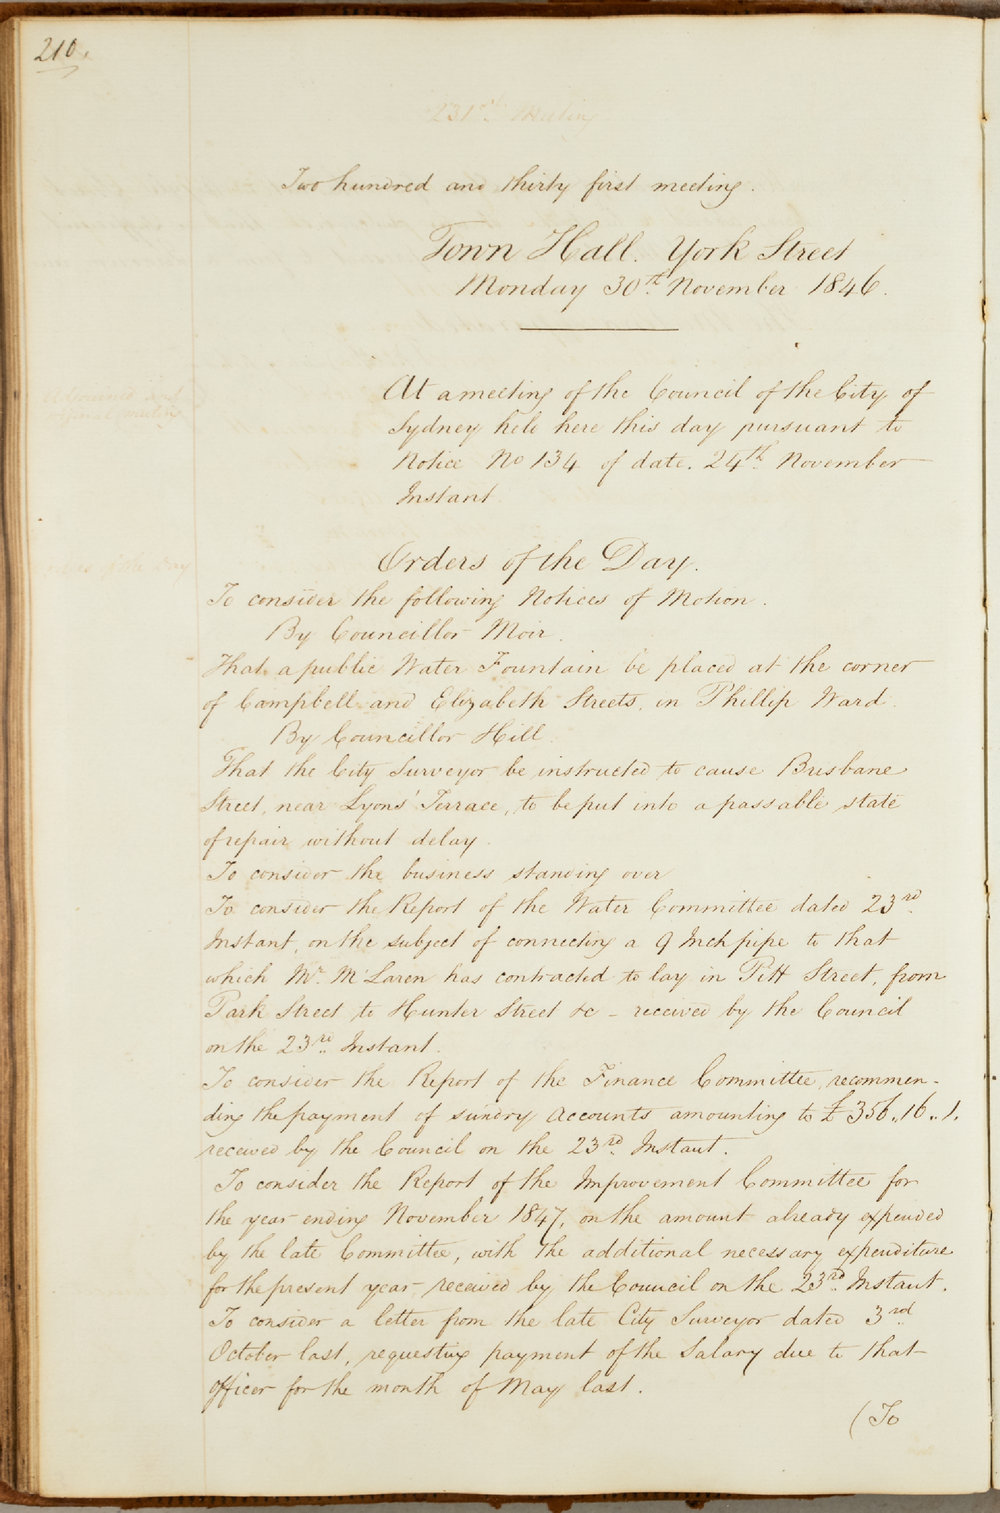 210.
231st. Meeting
Two hundred and thirty first meeting.
Town Hall. York Street
Monday 30th. November 1846.
At a meeting of the Council of the City of
Sydney held here this day pursuant to
Notice No 134 of date. 24th. November
Instant
Orders of the Day.
To consider the following Notices of Motion.
By Councillor Moir.
That a public Water Fountain be placed at the corner
of Campbell and Elizabeth Streets, in Phillip Ward.
By Councillor Hill.
That the City Surveyor be instructed to cause Brisbane
Street, near Lyons' Terrace, to be put into a passable state
of repair without delay.
To consider the business standing over
To consider the Report of the Water Committee dated 23rd.
Instant, on the subject of connecting a 9 Inch pipe to that
which Mr. McLaren has contracted to lay in Pitt Street, from
Park Street to Hunter Street &c - received by the Council
on the 23rd. Instant.
To consider the Report of the Finance Committee, recommen-
ding the payment of sundry accounts amounting to £356..16..1.
received by the Council on the 23rd. Instant.
To consider the Report of the Improvement Committee for
the year ending November 1847, on the amount already expended
by the late Committee, with the additional necessary expenditure
for the present year received by the Council on the 23rd. Instant.
To consider a letter from the late City Surveyor dated 3rd.
October last, requesting payment of the Salary due to that
officer for the month of May last.
(To